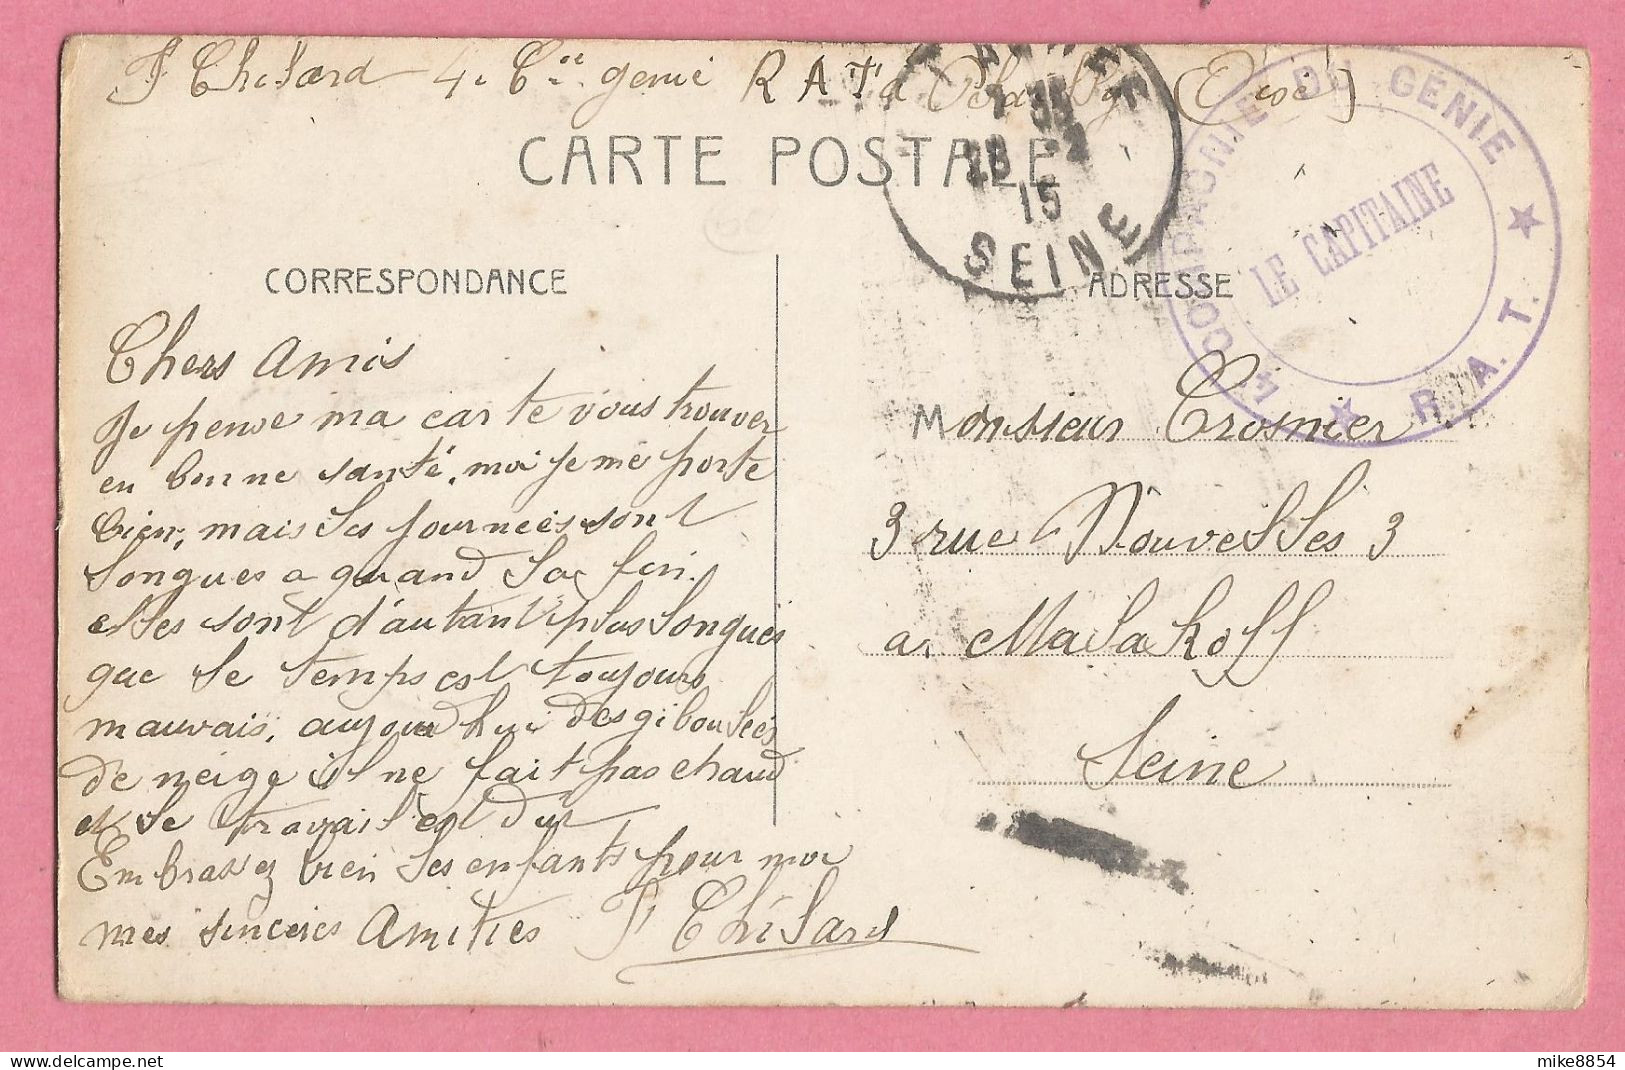 F Chilard 4e Cie genie R A T à (Oise)
CARTE POSTALE
CORRESPONDANCE
ADRESSE
15
SEINE
4e COMPAGNIE DU GÉNIE
LE CAPITAINE
R. A. T.
Chers Amis
Je pense ma carte vous trouver
en bonne santé, moi je me porte
bien, mais les journeés sont
longues a quand la fin.
elles sont d'autant plus longues
que le temps est toujours
mauvais, aujourd hui des gibouleés
de neige il ne fait pas chaud
et le travail est dur
Embrassez bien les enfants pour moi
mes sinceres Amities F Chilard
Monsieur Crosnier
3 rue Nouvelles 3
a Malakoff
Seine
mike8854